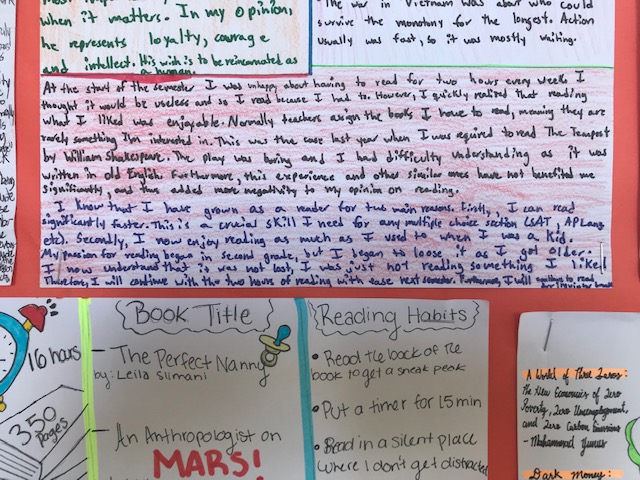 when it matters. In my opinion,
he represents loyalty, courage
and intellect. His wish is to be reincarnated as
a human.
The war in Vietnam was about who could
survive the monotony for the longest. Action
usually was fast, so it was mostly waiting.
At the start of the semester I was unhappy about having to read for two hours every week. I
thought it would be useless and so I read because I had to. However, I quickly realized that reading
what I liked was enjoyable. Normally teachers assign the books I have to read, meaning they are
rarely something I'm interested in. This was the case last year when I was required to read The Tempest
by William Shakespeare. The play was boring and I had difficulty understanding as it was
written in old English. Furthermore, this experience and other similar ones have not benefited me
significantly, and thus added more negativity to my opinion on reading.
I know that I have grown as a reader for two main reasons. Firstly, I can read
significantly faster. This is a crucial skill I need for any multiple choice section (SAT, AP Lang,
etc). Secondly, I now enjoy reading as much as I used to when I was a kid.
My passion for reading began in second grade, but I began to loose it as I got older.
I now understand that it was not lost, I was just not reading something I liked
Therefore, I will continue with the two hours of reading with ease next semester. Furthermore, I will
16 hours
350
Pages
Book Title
The Perfect Nanny
by: Leila Slimani
An Anthropologist on
MARS!
Reading Habits
• Read the back of the
book to get a sneak peak
• Put a timer for 15 min
• Read in a silent place
where I don't get distracted
A World of Three Zeros:
The New Economics of Zero
Poverty, Zero Unemployment,
and Zero Carbon Emissions
- Muhammad Yunus
Dark Money: